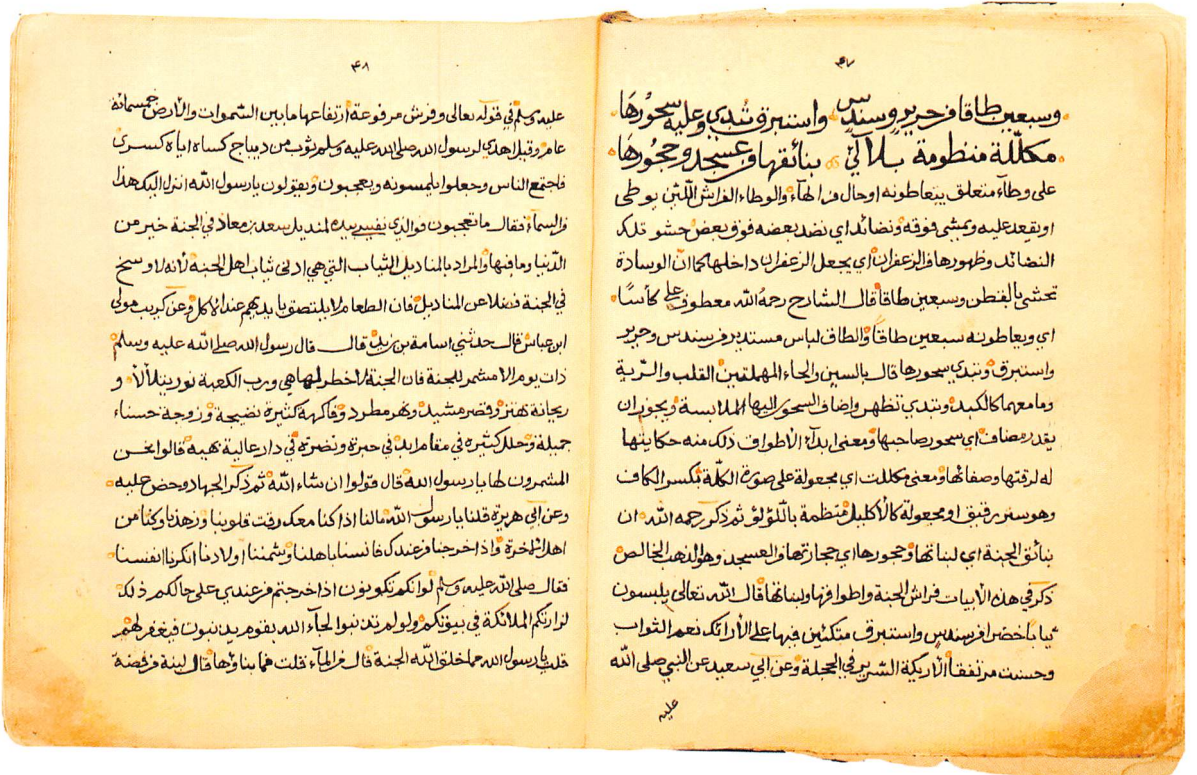 ٤٧
وسبعين طاقا من حرير وسندس واستبرق تبدي وعليه سحورها
مكللة منظومة بلآلي بنائقها من عسجد وحجورها
على وطآء متعلق بيتعاطونه او حال من الهآء والوطاء الفراش اللين يوطى
او يقعد عليه ويمشى فوقه ونضائد اي نضد بعضه فوق بعض حشو تلك
النضائد وظهورها من الزعفران اي يجعل الزعفران داخلها كما ان الوسادة
تحشى بالقطن وسبعين طاقا قال الشارح رحمه الله معطوف على كأسا
اي ويعاطونه سبعين طاقا والطاف لباس مستدير من سندس وحرير
واستبرق وتبدي سحورها قال بالسين والحاء المهملتين القلب والرية
وما معهما كالكبد وتبدي تظهر واضاف السحور اليها الملابسة ويجوز ان
يقدر مضاف اي سحور صاحبها ومعنى ابدآء الأطواف ذلك منه حكايتها
له لرقتها وصفائها ومعنى مكللت اي مجعولة على صورة الكلة بكسر الكاف
وهو ستر رقيق او مجعولة كالأكليل منتظمة باللؤلؤ ثم ذكر رحمه الله ان
نبائق الجنة اي لبناتها وحجورها اي حجارتها والعسجد وهو الذهب الخالص
ذكر في هذه الأبيات فراش الجنة واطوافها ولبناتها قال الله تعالى يلبسون
ثيابا خضرا من سندس واستبرق متكئين فيها على الأرائك نعم الثواب
وحسنت مرتفقا الأريكة السرير في الحجلة وعن ابي سعيد عن النبي صلى الله
عليه
٤٨
عليه وسلم في قوله تعالى وفرش مرفوعة ارتفاعها ما بين السموات والأرض خمسمائة
عام وقيل اهدي لرسول الله صلى الله عليه وسلم ثوب من ديباج كساه اياه كسرى
فاجتمع الناس وجعلوا يلمسونه ويعجبون ويقولون يا رسول الله انزل اليك هذا
من السمآء فقال ما تعجبون فوالذي نفسي بيده لمنديل سعد بن معاذ في الجنة خير من
الدنيا وما فيها والمراد بالمناديل الثياب التي هي ادنى ثياب اهل الجنة لأنه لا وسخ
في الجنة فضلا عن المناديل فان الطعام لا يلتصق بايديهم عند الأكل وعن كريب مولى
ابن عباس قال حدثني اسامة بن زيد قال قال رسول الله صلى الله عليه وسلم
ذات يوم الا مشمر للجنة فان الجنة لا خطر لها هي ورب الكعبة نور يتلألأ و
ريحانة تهتز وقصر مشيد ونهر مطرد وفاكهة كثيرة نضيجة وزوجة حسناء
جميلة وحلل كثيرة في مقام ابد في حبرة ونضرة في دار عالية بهية قالوا نحن
المشمرون لها يا رسول الله قال قولوا ان شاء الله ثم ذكر الجهاد وحض عليه
وعن ابي هريرة قلنا يا رسول الله مالنا اذا كنا معك رقت قلوبنا وزهدنا وكنا من
اهل الآخرة واذا خرجنا من عندك فانسنا باهلنا وشممنا اولادنا انكرنا انفسنا
فقال صلى الله عليه وسلم لو انكم تكونون اذا خرجتم من عندي على حالكم ذلك
لزارتكم الملائكة في بيوتكم ولو لم تذنبوا لجآء الله بقوم يذنبون فيغفر لهم
قلت يا رسول الله مما خلق الله الجنة قال من المآء قلت فما بناؤها قال لبنة من فضة